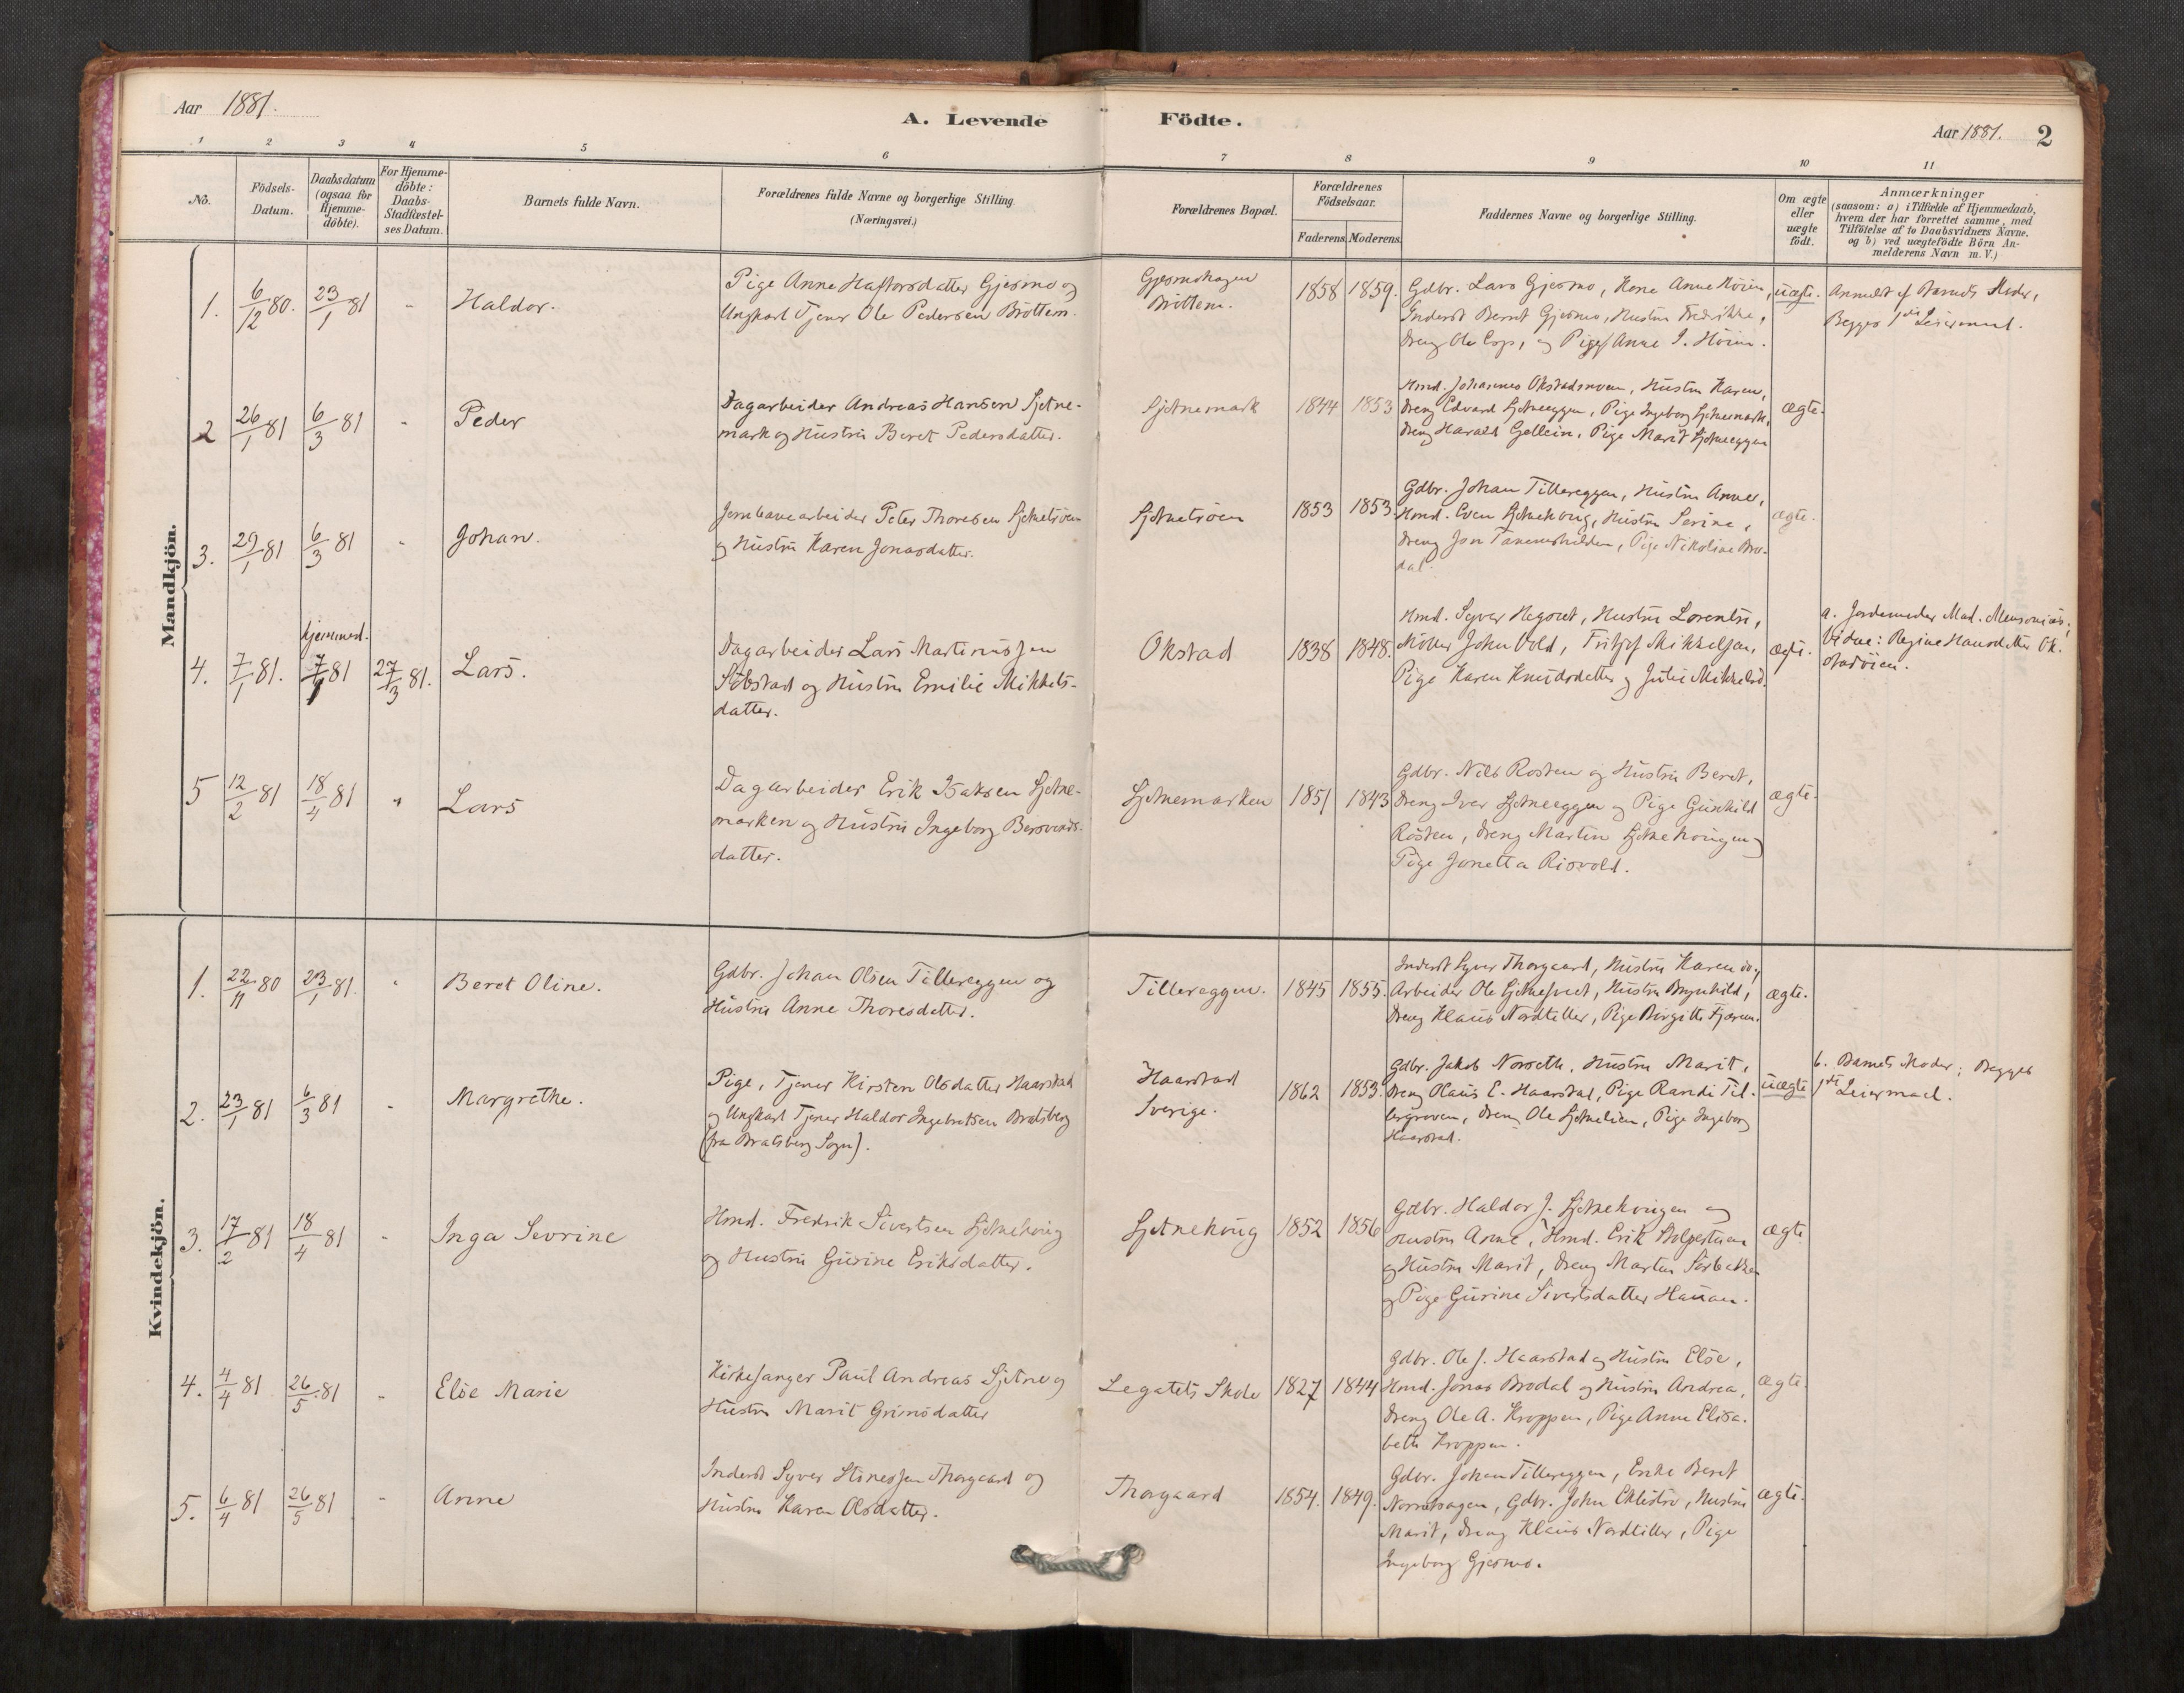 Aar 1881.
A. Levende Födte.
Aar 1881. 2
1 2 3 4 5 6 7 8 9 10 11
No.
Födsels-
Datum.
Daabsdatum
(ogsaa for
Hjemme-
döbte).
For Hjemme-
döbte:
Daabs-
Stadfæstel-
ses Datum.
Barnets fulde Navn.
Forældrenes fulde Navne og borgerlige Stilling.
(Næringsvei.)
Forældrenes Bopæl.
Forældrenes
Födselsaar.
Faderens. Moderens.
Faddernes Navne og borgerlige Stilling.
Om ægte
eller
uægte
födt.
Anmærkninger
(saasom: a) i Tilfælde af Hjemmedaab,
hvem der har forrettet samme, med
Tilföielse af to Daabsvidners Navne,
og b) ved uægtefödte Börn An-
melderens Navn m. V.)
Mandkjön.
1. 6/12 80. 23/1 81 - Haldor.
Pige Anne Haftorsdatter Gjesmo og
Ungkarl Tjener Ole Pedersen Bröttem.
Gjesmohagen
Bröttem.
1858 1859.
Gdbr. Lars Gjesmo, Kone Anne Höiem,
Inderst Bernt Gjesmo, Hustru Fredrikke,
Dreng Ole Esp, og Pige Anne J. Höiem.
uægte.
Anmeldt af Barnets Moder,
Begges 1ste Leiermaal.
2 26/1 81 6/3 81 - Peder
Dagarbeider Andreas Hansen Sjetne-
mark og Hustru Beret Pedersdatter.
Sjetnemark
1844 1853
Hmd. Johannes Okstadmoen, Hustru Karen,
Dreng Edvard Sjetneeggen, Pige Ingeborg Sjetnemark,
Dreng Harald Gellein, Pige Marit Sjetneeggen
ægte.
3. 29/1 81 6/3 81 - Johan.
Jernbanearbeider Peter Thoresen Sjetnetröen
og Hustru Karen Jonasdatter.
Sjetnetröen
1853 1853.
Gdbr. Johan Tillereggen, Hustru Anne,
Hmd. Even Sjetnehoug, Hustru Serine,
Dreng Jon Tanemshilden, Pige Nikoline Bro-
dal.
ægte.
4. 7/1 81. hjemmed. 7/1 81 27/3 81. Lars.
Dagarbeider Lars Martinussen
Söbstad og Hustru Emilie Mikkels-
datter.
Okstad
1838 1848.
Hmd. Syver Hegstet, Hustru Lorentse,
Möller John Vold, Fritjof Mikkelsen,
Pige Karen Knudsdatter og Julie Mikkelsd.
ægte.
a. Jordemoder Mad. Mensonius;
Vidne: Regine Hansdatter Ok-
stadöien.
5 12/2 81 18/4 81 " Lars
Dagarbeider Erik Isaksen Sjetne-
marken og Hustru Ingeborg Bersvends-
datter.
Sjetnemarken
1851 1843
Gdbr. Nils Rosten og Hustru Beret,
Dreng Iver Sjetneeggen og Pige Gunhild
Rosten, Dreng Martin Sjetnehougen og
Pige Jonetta Risvold.
ægte.
Kvindekjön.
1. 22/11 80 23/1 81. " Beret Oline.
Gdbr. Johan Olsen Tillereggen og
Hustru Anne Thoresdatter.
Tillereggen.
1845 1855.
Inderst Syver Thorgaard, Hustru Karen do,
Arbeider Ole Sjetnesveet, Hustru Brynhild,
Dreng Klaus Nordtiller, Pige Birgitte Fjærem.
ægte.
2. 23/1 81 6/3 81 - Margrethe.
Pige, Tjener Kirsten Olsdatter Haarstad
og Ungkarl Tjener Haldor Ingebretsen Bratsberg
(fra Bratsberg Sogn).
Haarstad
Sverige.
1862 1853.
Gdbr. Jakob Norseth, Hustru Marit,
Dreng Olaus E. Haarstad, Pige Randi Til-
lergroven, Dreng Ole Sjetnelien, Pige Ingeborg
Haarstad.
uægte
b. Barnets Moder; Begges
1ste Leiermaal.
3. 17/2 81 18/4 81 - Inga Sevrine
Hmd. Fredrik Sivertsen Sjetnehoug
og Hustru Gurine Eriksdatter.
Sjetnehoug
1852 1856
Gdbr. Haldor J. Sjetnehougen og
Hustru Anne, Hmd. Erik
og Hustru Marit, Dreng Martin
og Pige Gurine Sivertsdatter Hauan.
ægte
4. 4/4 81 26/5 81 - Else Marie
Kirkesanger Paul Andreas Sjetne og
Hustru Marit Grimsdatter
Legatets Skole
1827 1844
Gdbr. Ole J. Haarstad og Hustru Else,
Hmd. Jonas Brodal og Hustru Andrea,
Dreng Ole A. Kroppen, Pige Anne Elisa-
beth Kroppen.
ægte.
5. 6/4 81 26/5 81 - Anne
Inderst Syver Stinessen Thorgaard og
Hustru Karen Olsdatter.
Thorgaard
1854. 1849.
Gdbr. Johan Tillereggen, Enke Beret
Gdbr. John Eklistrø, Hustru
Marit, Dreng Klaus Nordtiller, Pige
Ingeborg Gjesmo.
ægte.